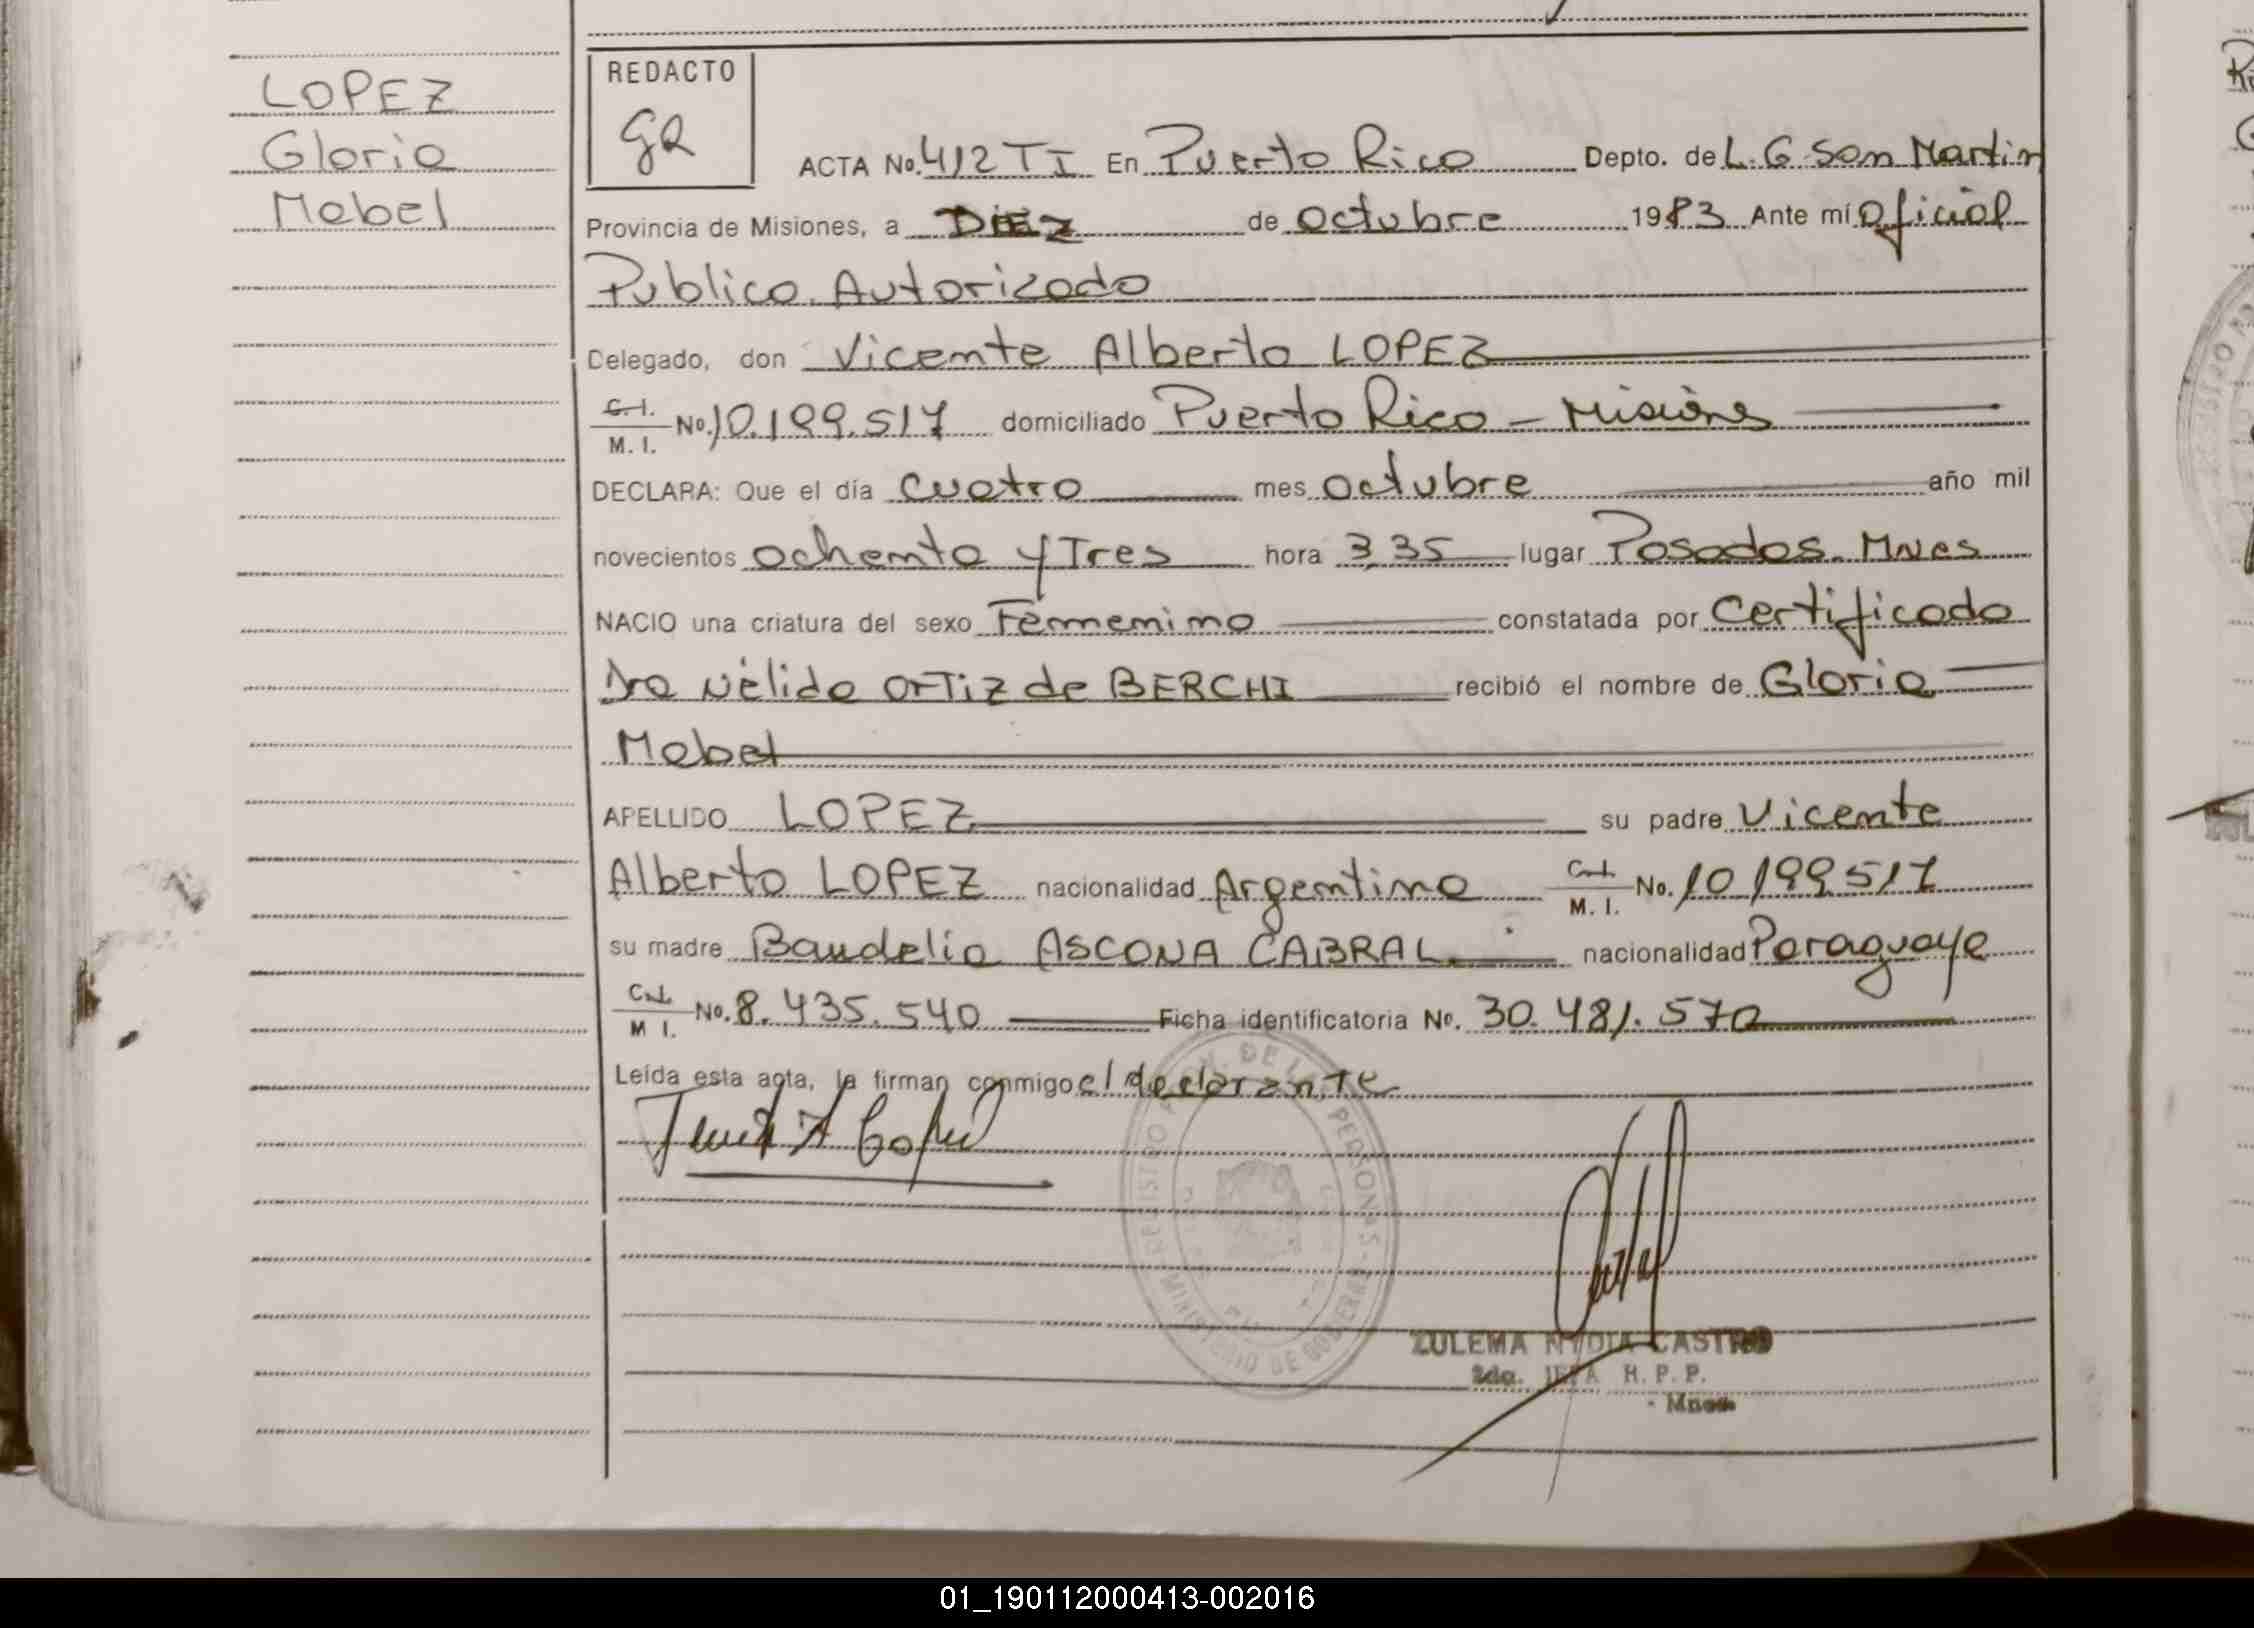 LOPEZ
Gloria
Mabel
REDACTO
GR
ACTA No. 412 TI En Puerto Rico Depto. de L. G. San Martin
Provincia de Misiones, a DIEZ de octubre 1983 Ante mí Oficial
Publico Autorizado
Delegado, don Vicente Alberto LOPEZ
C. I. / M. I. No. 10.199.517 domiciliado Puerto Rico - Misiones
DECLARA: Que el día cuatro mes octubre año mil
novecientos ochenta y Tres hora 3,35 lugar Posadas. Mnes
NACIO una criatura del sexo Femenino constatada por Certificado
Dra Nélida ORTIZ de BERCHI recibió el nombre de Gloria
Mabel
APELLIDO LOPEZ su padre Vicente
Alberto LOPEZ nacionalidad Argentino C. I. / M. I. No. 10.199.517
su madre Baudelia ASCONA CABRAL. nacionalidad Paraguaya
C. I. / M I. No. 8.435.540 Ficha identificatoria No. 30.481.570
Leída esta acta, la firman conmigo el declarante
REGISTRO DE LAS PERSONAS - MINISTERIO DE GOBIERNO
ZULEMA NYDIA CASTRO
2da. JEFA R. P. P.
- Mnes
01_190112000413-002016